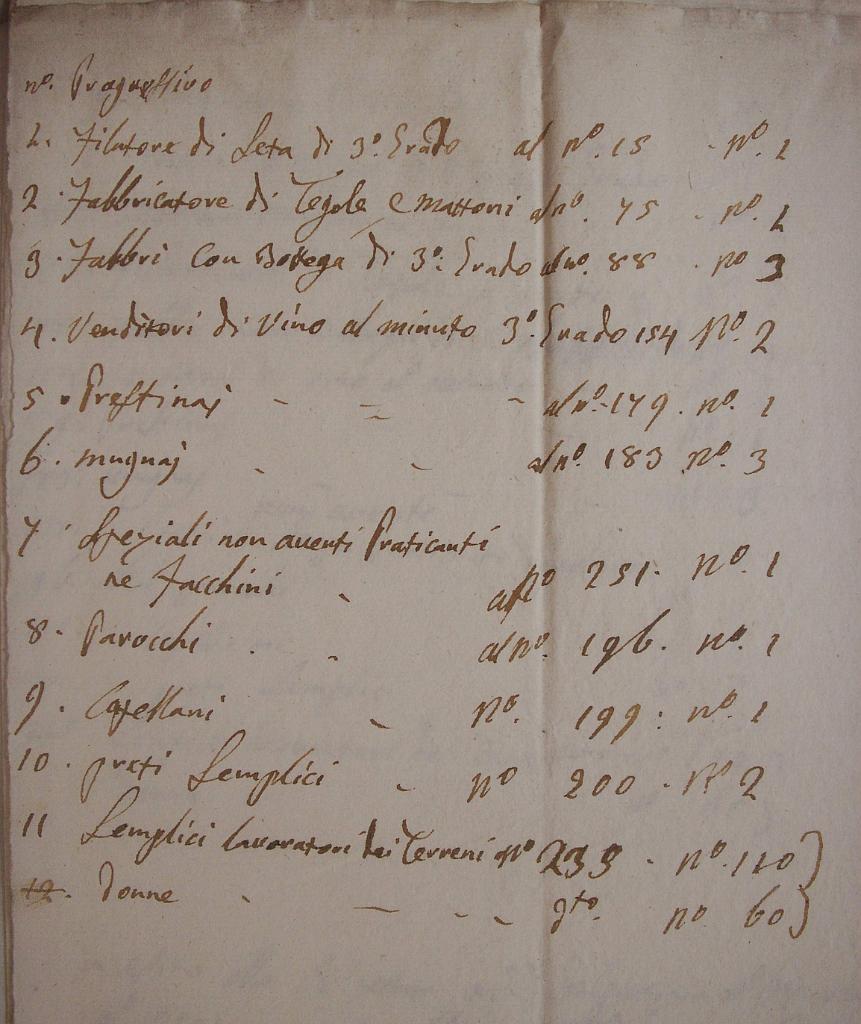 nº. Progressivo
1. Filatore di Seta di 3º. Grado al nº. 15 . nº. 1
2. Fabbricatore di Tegole e mattoni al nº. 75 . nº. 1
3. Fabbri con Bottega di 3º. Grado al nº. 88 . nº 3
4. Venditori di Vino al minuto 3º. Grado 154 Nº. 2
5. Prestinaj - = - al nº. 179. nº. 1
6. mugnaj - - al nº. 183 nº. 3
7. Speziali non aventi Praticanti
ne Facchini - al nº 251. nº. 1
8. Parocchi . - al nº. 196. nº. 1
9. Capellani - Nº. 199: nº. 1
10. preti Semplici - nº 200 - Nº 2
11 Semplici lavoratori dei Terreni nº 239 . nº. 110}
12. donne - — - - dto. nº 60}